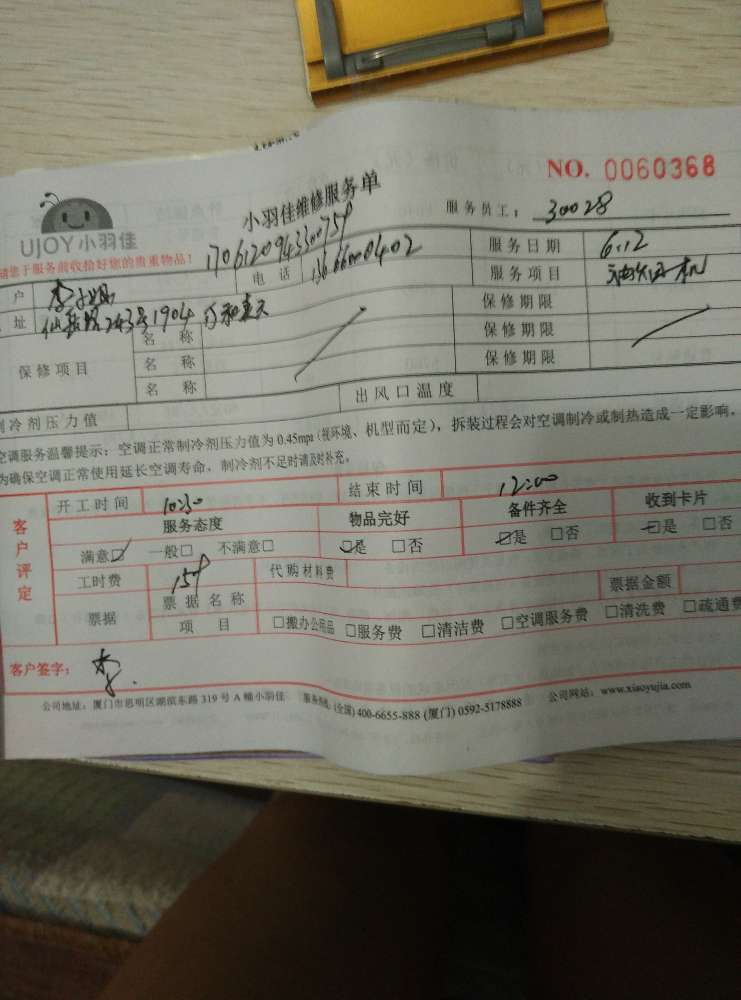 NO. 0060368
小羽佳维修服务单
UJOY小羽佳
服务员工： 30028
请您于服务前收拾好您的贵重物品！
户 电 话 服务日期 6.12
址 243号1904 服务项目 油烟机
保修项目 名 称 保修期限
名 称 保修期限
名 称 保修期限
制冷剂压力值 出风口温度
空调服务温馨提示：空调正常制冷剂压力值为 0.45mpa（视环境、机型而定），拆装过程会对空调制冷或制热造成一定影响，
为确保空调正常使用延长空调寿命，制冷剂不足时请及时补充。
客户评定
开工时间 10:30 结束时间 12:00
服务态度 物品完好 备件齐全 收到卡片
满意☑ 一般□ 不满意□ ☑是 □否 ☑是 □否 ☑是 □否
工时费 158 代购材料费
票据 票据名称 票据金额
项 目 □搬办公用品 □服务费 □清洁费 □空调服务费 □清洗费 □疏通费
客户签字： 李
公司地址：厦门市思明区湖滨东路 319 号 A 幢小羽佳 服务热线：(全国) 400-6655-888 (厦门) 0592-5178888 公司网站：www.xiaoyujia.com